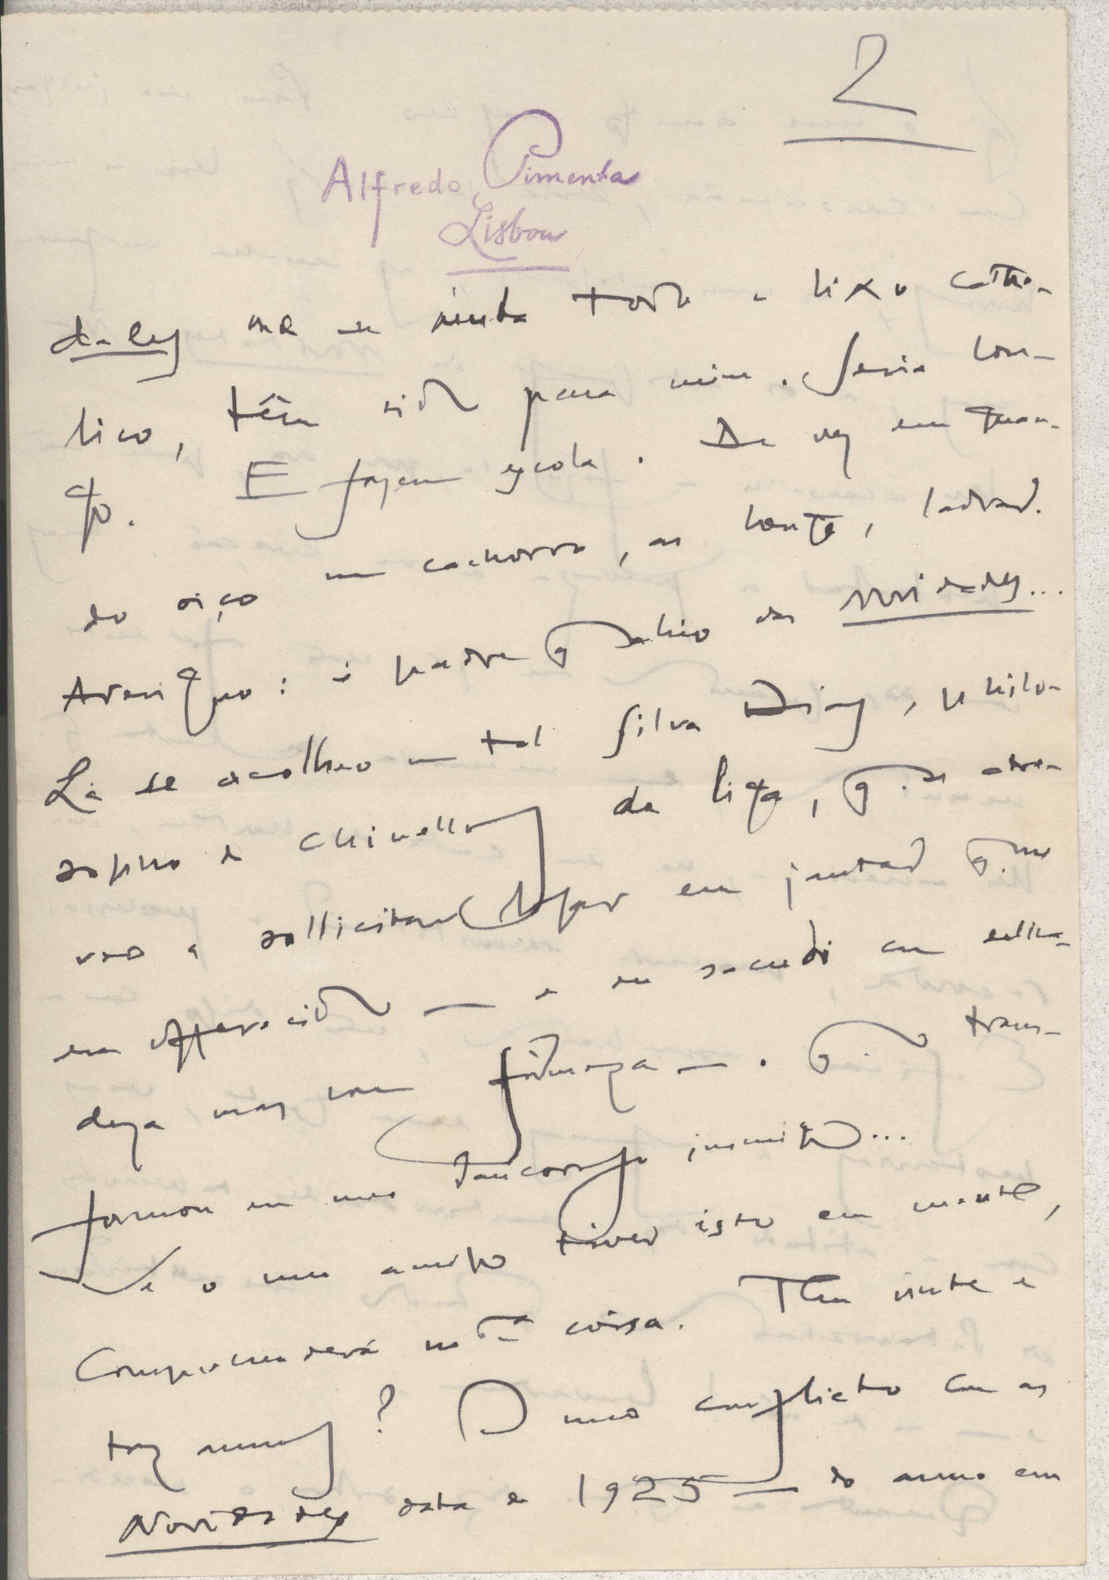 2
Alfredo Pimenta
Lisboa
dades me e ainda todo o lixo catho-
lico, têm sido para mim. Seria lon-
go. E fazem escola. De vez em quan-
do oiço um cachorro, ao longe, ladrar.
Averiguo: é padre q sahio das Novidades...
Lá se acolheu um tal Silva Dias, philo-
sopho de chinellos da liga, q. se atre-
veu a sollicitar logar em jantar q. me
era offerecido — e eu sacudi com delica-
deza mas com firmeza —. Q. trans-
formou em meu rancoroso inimigo...
Se o meu amigo tiver isto em mente,
comprehenderá mta coisa. Tem vinte e
tres annos? O meu conflicto com as
Novidades data de 1925 — do anno em